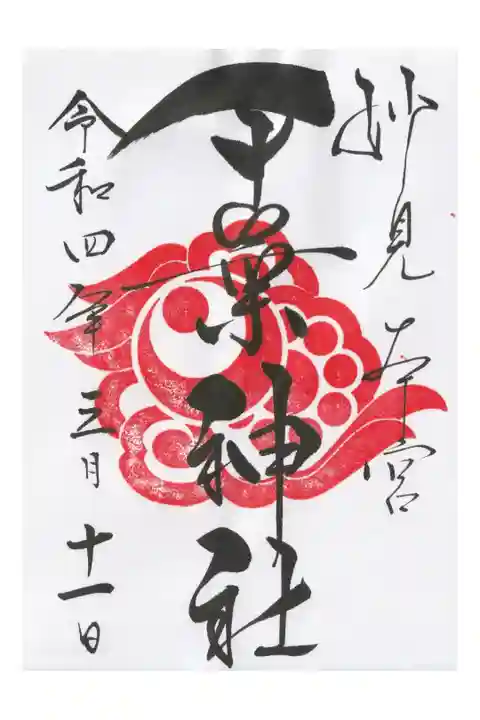 妙見本宮
千葉神社
令和四年三月十一日